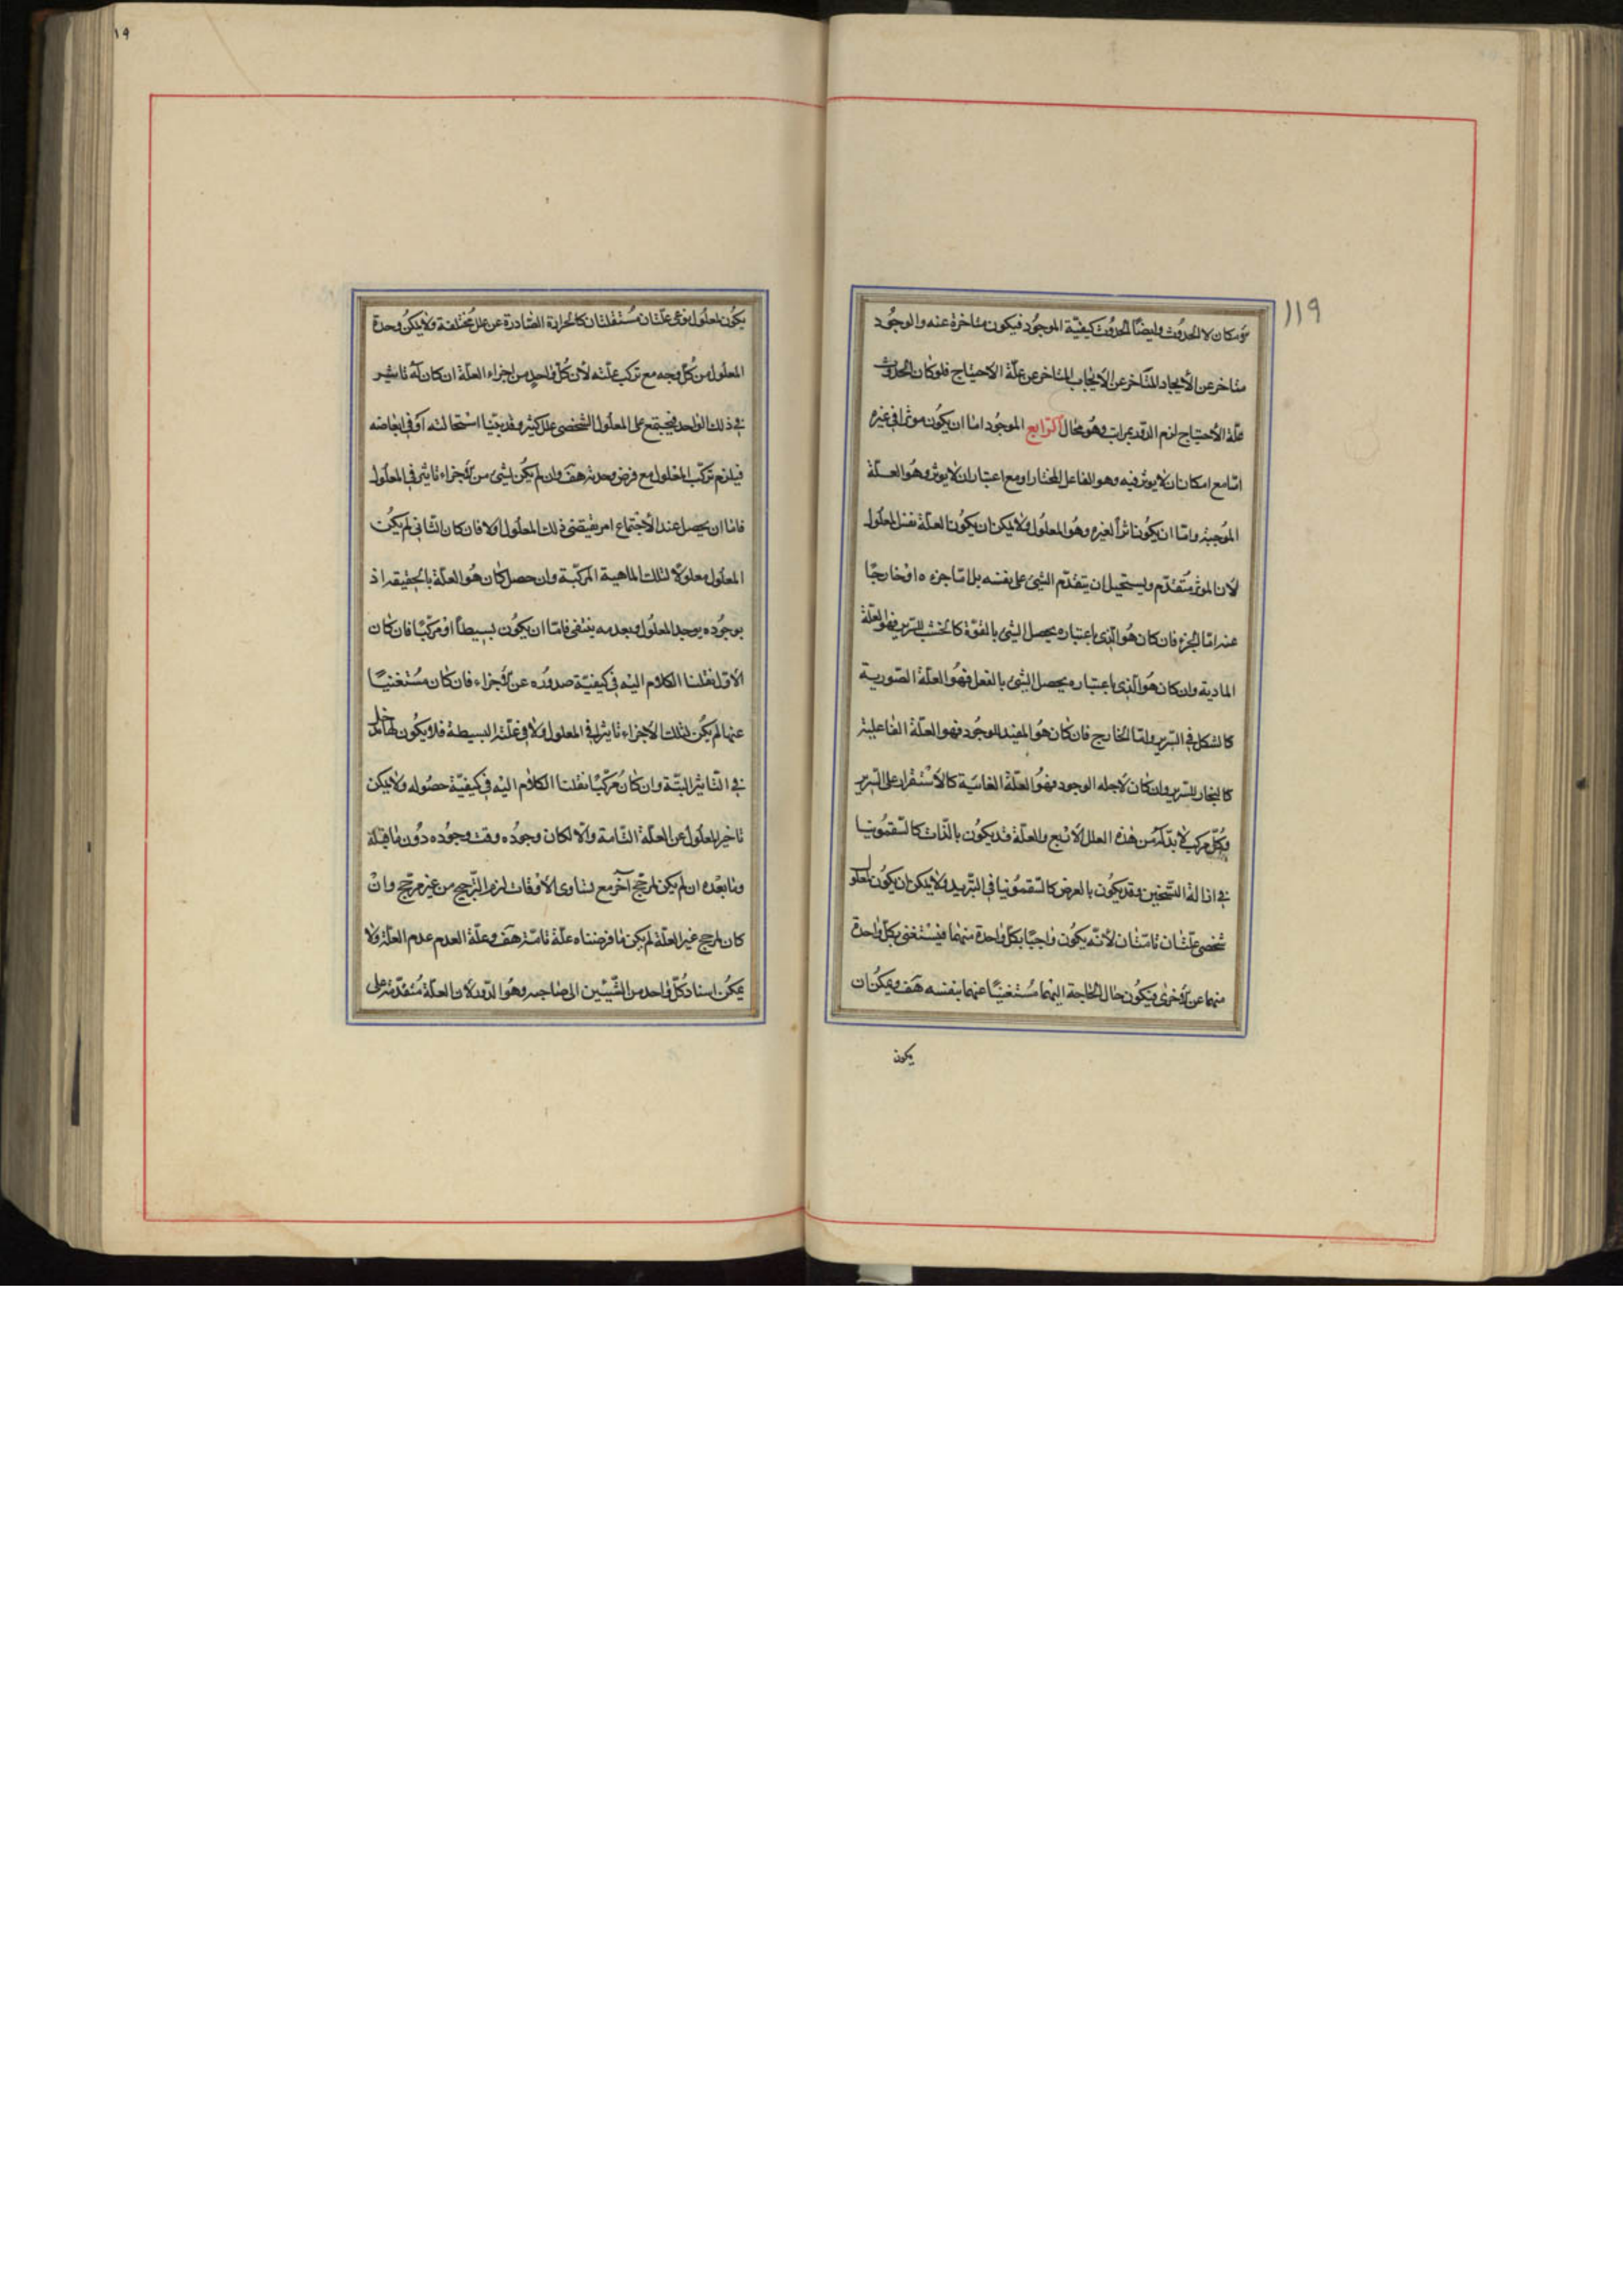 ١١٩
هو الامكان لا الحدوث وايضاً الحدوث كيفيّة الموجُود فيكون متاخرة عنه والوجُود
متاخر عن الأيجاد المتأخر عن الأيجاب المتاخر عن علّة الاحتياج فلو كان الحدوث
علّة الاحتياج لزم الدور بمراتب وهُو محال الرّابع الموجُود امّا ان يكُون موثرا في غيره
امّا مع امكان ان لا يوثر فيه وهو الفاعل المختار او مع اعتبار ان لا يوثر وهُو العـلّة
المُوجبة وامّا ان يكُون اثراً لغيره وهُو المعلُول ولا يمكن ان يكُون العلّة نفس المعلول
لأن الموثر مُتقدّم ويستحيل ان يتقدّم الشئ على نفسه بل امّا جزءه او خارجًا
عنه امّا الجزء فان كان هُو الّذى باعتباره يحصل الشئ بالقوّة كالخشب للسّرير فهُو العلّة
المادية وان كان هُو الّذى باعتباره يحصل الشئ بالفعل فهُو العلّة الصّورية
كالشكل في السّرير وامّا الخارج فان كان هُو المفيد للوجُود فهو العلّة الفاعلية
كالنجار للسّرير وان كان لأجله الوجود فهُو العلّة الغائيّة كالأستقرار على السّرير
وكُلّ مركب لا بدّ له من هذه العلل الأربع والعلّة قد يكُون بالذّات كالسّقمُونيا
في ازالة التسّخين وقد يكُون بالعرض كالسّقمُونيا في التّبريد ولا يمكن ان يكُون لمعلو
شخصى علّتان تامّتان لأنّه يكُون واجبًا بكلّ واحدة منهُما فيستغنى بكلّ واحدة
منهما عن الأخرى فيكُون حال الحاجة اليهُما مُستغنيًا عنهما بنفسه هَف ويمكن ان
يكون
١٩
يكُون لمعلُول نوعى علّتان مُستقلّتان كالحرارة الصّادرة عن علل مُختلفة ولا يمكن وحدة
المعلُول من كُلّ وجه مع تركب علّته لأن كُلّ واحد من اجزاء العلّة ان كان له تاثير
في ذلك الواحد فيجتمع على المعلُول الشّخصى علل كثيرة وقد بيّنا استحالته او في ابعاضه
فيلزم تركّب المعلول مع فرض وحدته هَف وان لم يكُن لشئ من الأجزاء تاثير في المعلُول
فامّا ان يحصل عند الأجتماع امر يقتضى ذلك المعلُول اولا فان كان الثّانى لم يكُن
المعلول معلولاً لتلك الماهية المركّبة وان حصل كان هُو العلّة بالحقيقة اذ
بوجُوده يوجد المعلُول وبعدمه ينتفى فامّا ان يكُون بسيطاً او مُركّبًا فان كان
الأوّل نقلنا الكلام اليه في كيفيّة صدوره عن الأجزاء فان كان مُستغنيًا
عنها لم يكُن لتلك الأجزاء تاثير لا في المعلول ولا في علّته البسيطة فلا يكُون لها مدخل
في التّاثير البتّة وان كان مُركّبًا نقلنا الكلام اليه في كيفيّة حصُوله ولا يمكن
تاخير المعلُول عن العلّة التّامة والّا لكان وجوُده وقت وجوُده دوُن ما قبله
وما بعدُه ان لم يكن لمرجّح آخر مع تساوى الأوقات لزم التّرجيح من غير مرجّح وان
كان لمرجح غير العلّة لم يكن ما فرضناه علّة تامّة هَف وعلّة العدم عدم العلّة ولا
يمكن اسناد كُلّ واحد من الشّيئين الى صاحبه وهُو الدّور لأن العلّة مُتقدّمة على